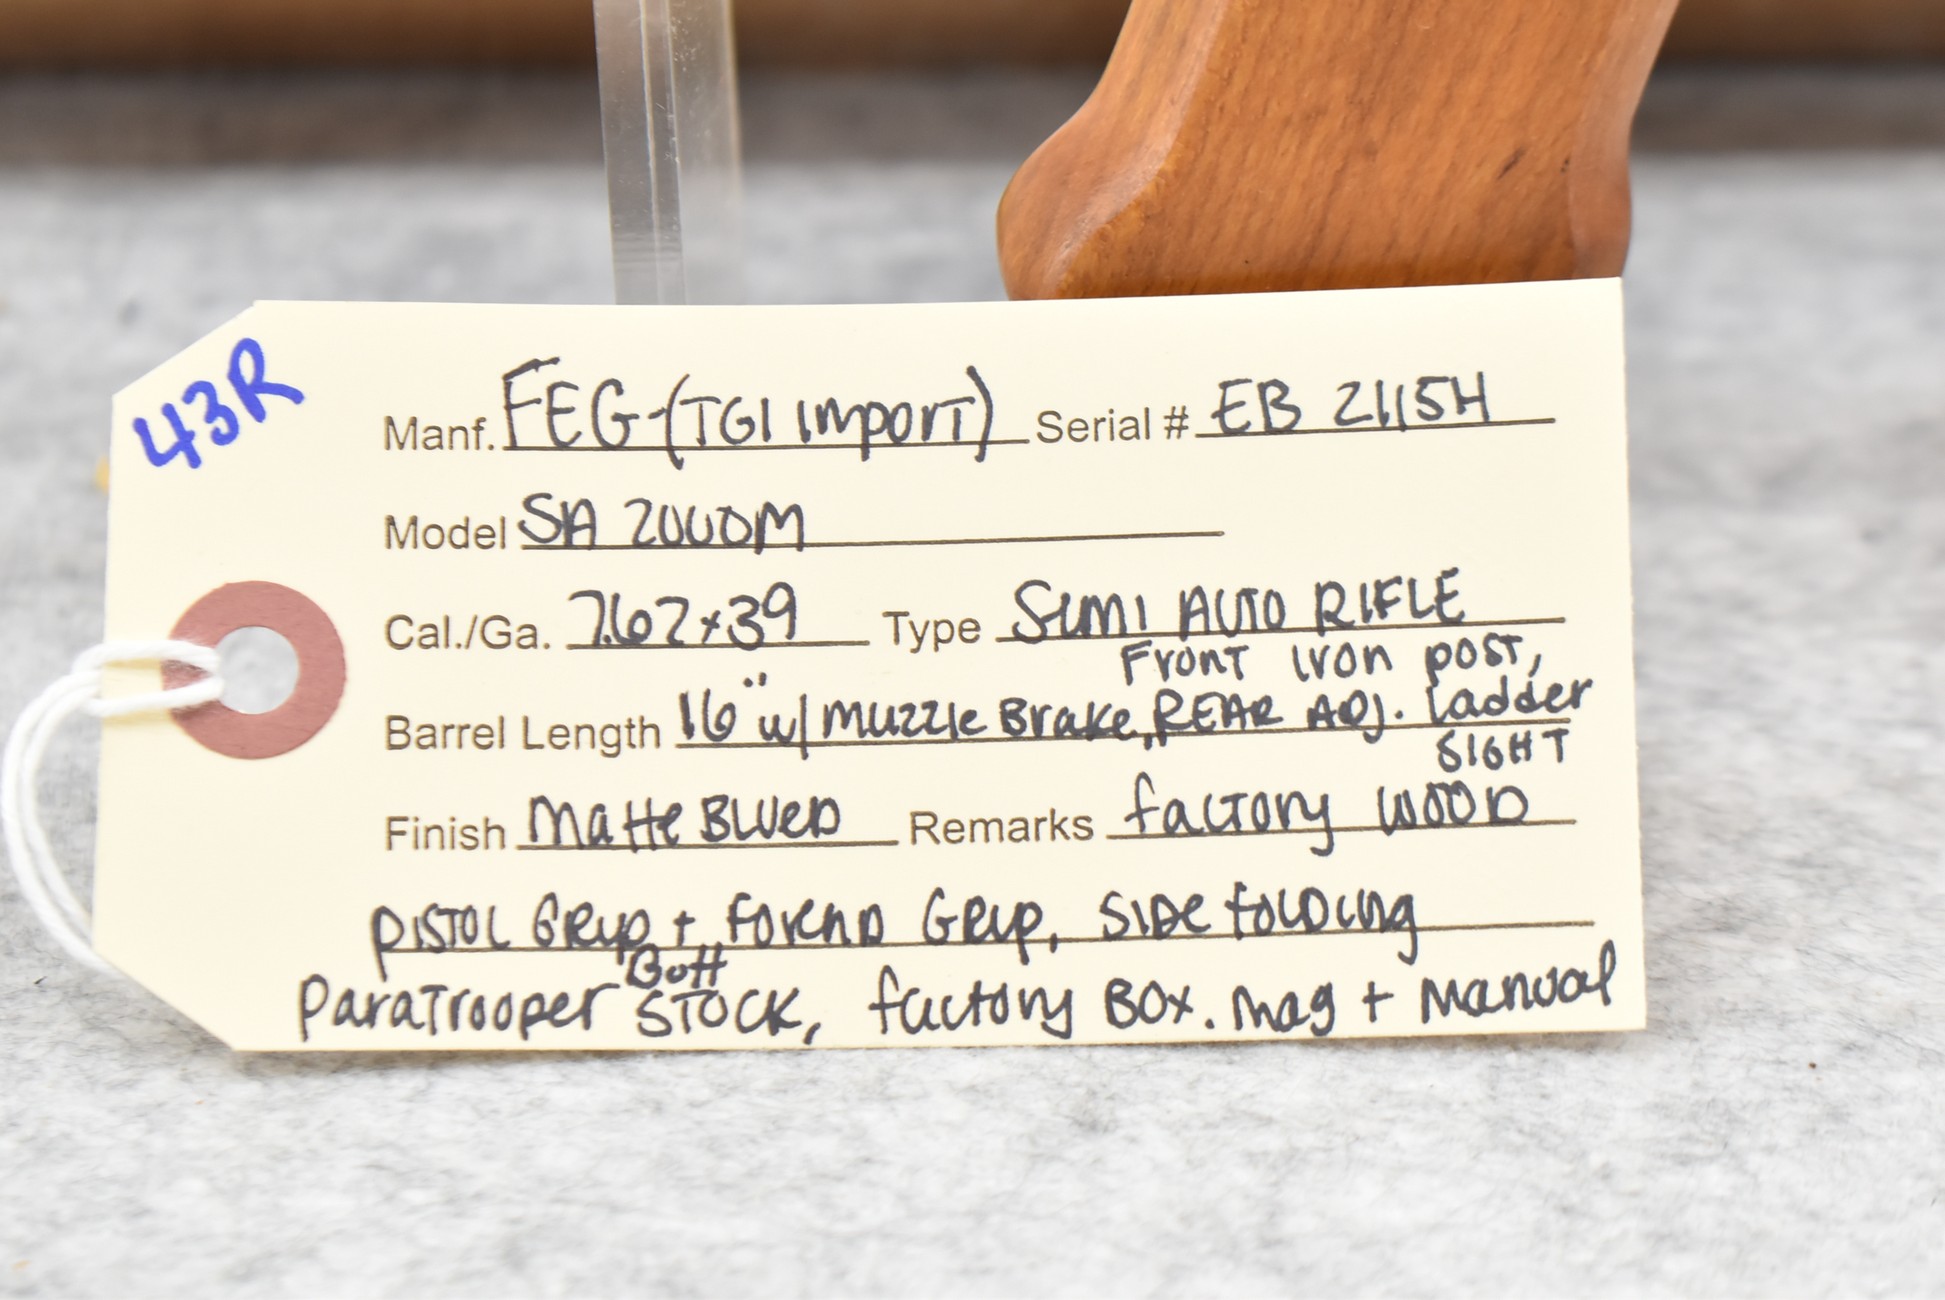 43R
Manf. FEG-(TGI Import) Serial # EB 2115H
Model SA 2000M
Cal./Ga. 7.62x39 Type SEMI AUTO RIFLE
Front Iron post,
Barrel Length 16" w/ Muzzle Brake, REAR ADJ. Ladder
SIGHT
Finish Matte BLUED Remarks factory WOOD
PISTOL GRIP + FOREND GRIP, SIDE FOLDING
Butt
ParaTrooper STOCK, factory BOX. Mag + Manual